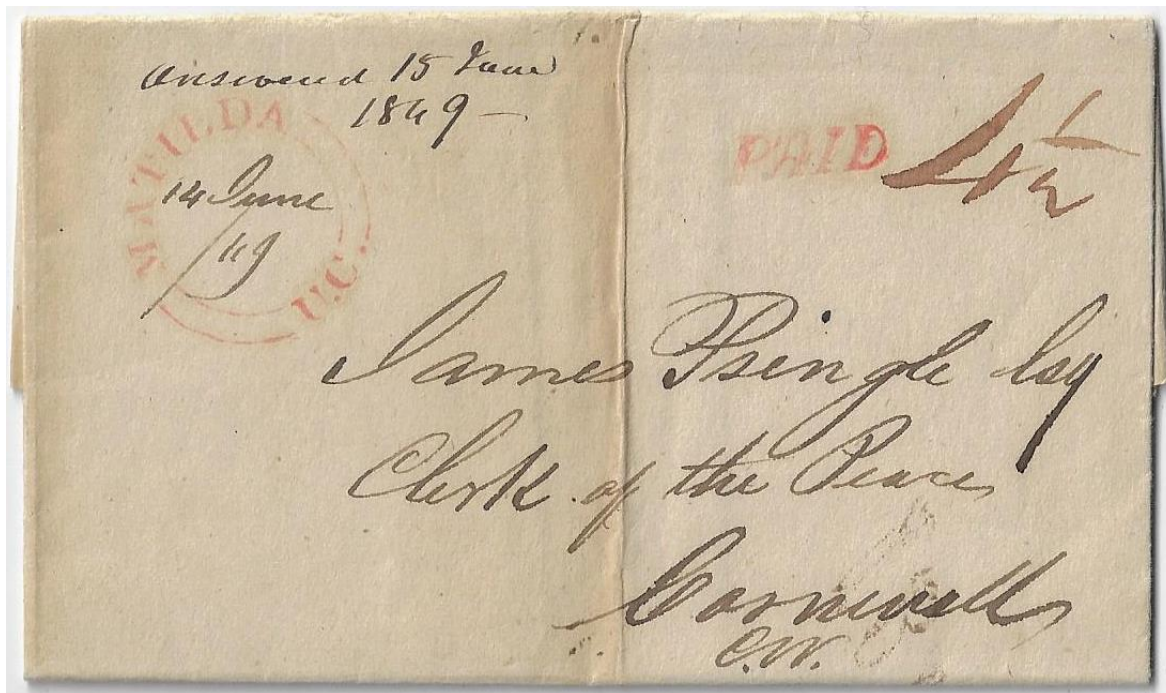 answered 15 June
1849 –
MATILDA
U.C.
14 June
/49
PAID
4 1/2
James Pringle Esq
Clerk of the Peace
Cornwall
C.W.